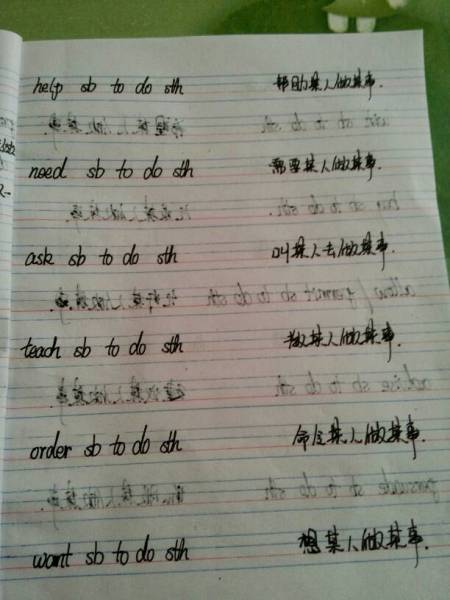 help sb to do sth 帮助某人做某事.
need sb to do sth 需要某人做某事.
ask sb to do sth 叫某人去做某事.
teach sb to do sth 教某人做某事.
order sb to do sth 命令某人做某事.
want sb to do sth 想某人做某事.